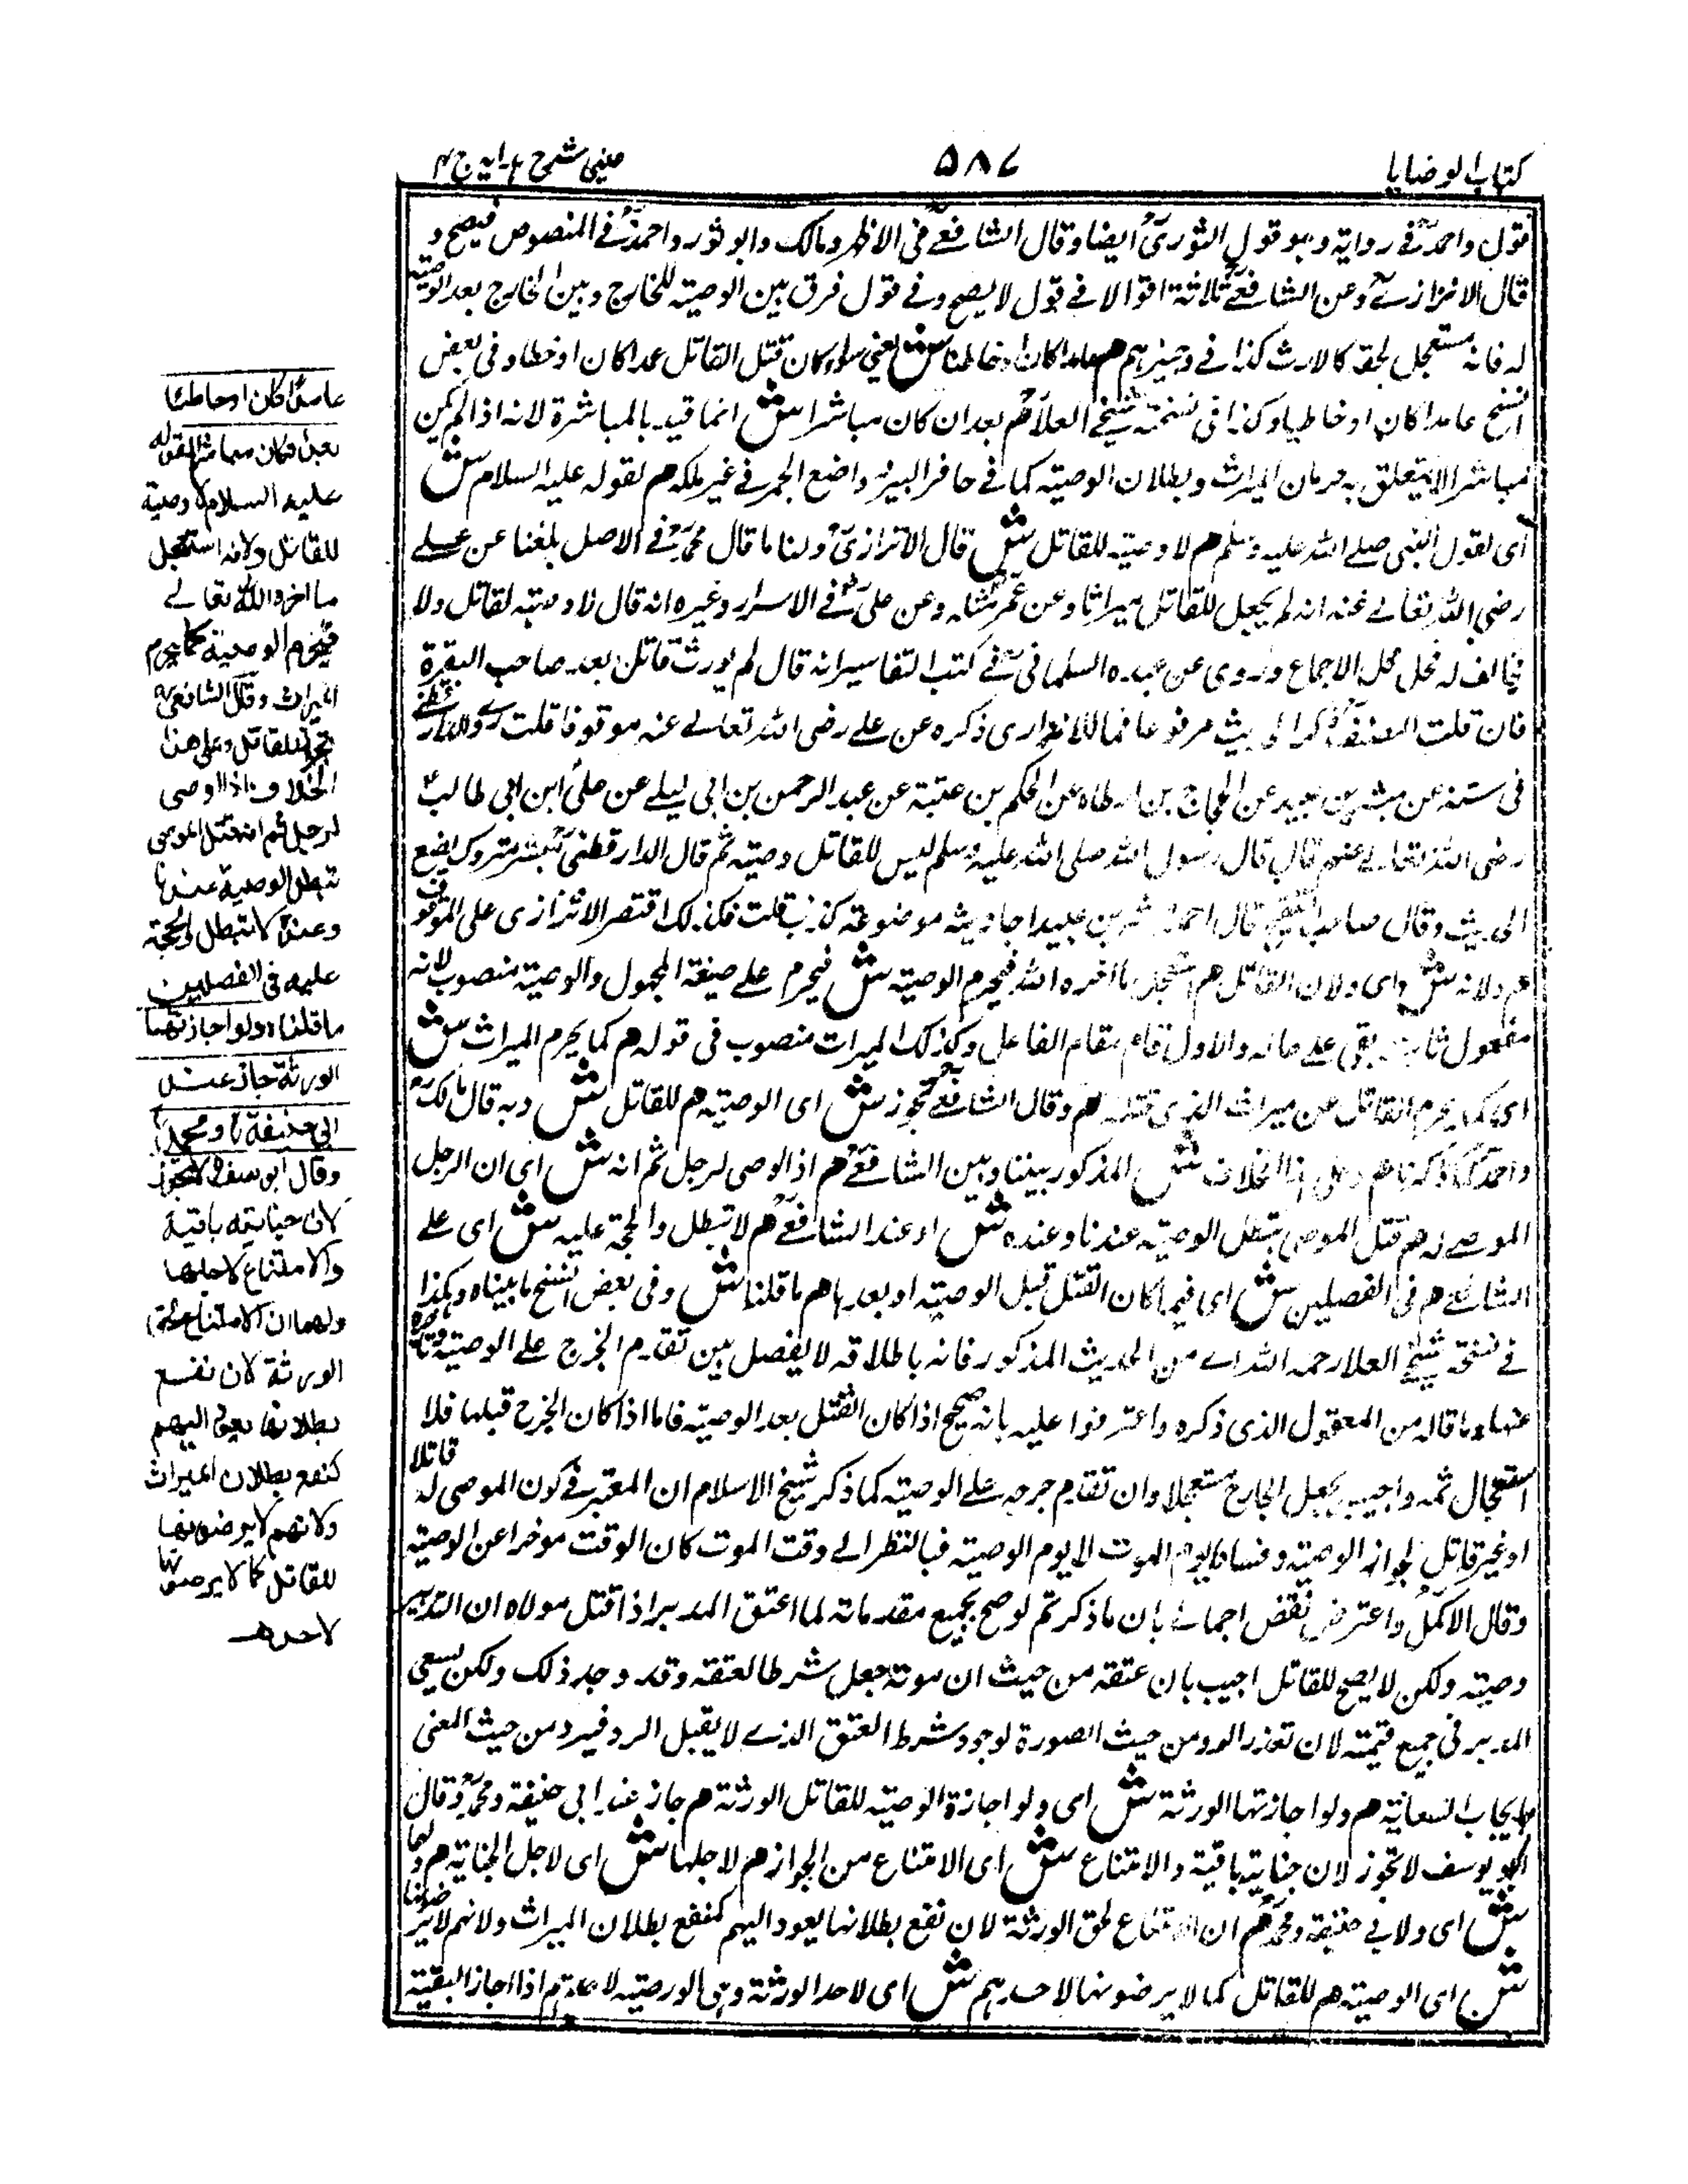 كتاب الوصايا
٥٨٧
عینی شرح هدایه ج ٤
قول واحمد فى رواية وهو قول الثورى ايضا وقال الشافعى فى الاظهر ومالك وابو ثور واحمد فى المنصوص فيصح و
قال الاترازى وعن الشافعى ثلاثة اقوالا فى قول لا يصح وفى قول فرق بين الوصية للخارج وبين الخارج بعد الوصية
له فانه مستعجل لحقه كالارث كذا فى هم عامدا كان او خاطئا ش يعنى سواء كان قتل القاتل عمدا كان او خطا وفى بعض
النسخ عامدا كان او خاطيا وكذا فى نسخة شيخى العلاء هم بعد ان كان مباشرا ش انما قيد بالمباشرة لانه اذا لم يكن
مباشرا لا يتعلق به حرمان الميراث وبطلان الوصية كما فى حافر البير واضع الحجر فى غير ملكه هم لقوله عليه السلام ش
اى لقول النبى صلى الله عليه وسلم هم لا وصية للقاتل ش قال الاترازى ولنا ما قال محمد فى الاصل بلغنا عن على
رضى الله تعالى عنه انه لم يجعل للقاتل ميراثا وعن عمر مثله وعن على فى الاسرار وغيره انه قال لا وصية لقاتل ولا
مخالف له فحل محل الاجماع وروى عن عبيده السلمانى فى كتب التفاسير انه قال لم يورث قاتل بعد صاحب البقرة
فان قلت المصنف ذكر الحديث مرفوعا فما للاترازى ذكره عن على رضى الله تعالى عنه موقوفا قلت روى الدارقطنى
فى سننه عن مبشر بن عبيد عن الحجاج بن ارطاه عن الحكم بن عتبة عن عبد الرحمن بن ابى ليلى عن على ابن ابى طالب
رضى الله تعالى عنهم قال قال رسول الله صلى الله عليه وسلم ليس للقاتل وصية ثم قال الدارقطنى مبشر متروك يضع
الحديث وقال صاحب التنقيح قال احمد مبشر بن عبيد احاديثه موضوعة كذب قلت فكذلك اقتصر الاترازى على الموقوف
هم ولانه ش اى ولان القاتل هم استعجل ما اخره الله فيحرم الوصية ش فيحرم على صيغة المجهول والوصية منصوب لانه
مفعول ثان بقى على حاله والاول قام مقام الفاعل وكذلك الميراث منصوب فى قوله هم كما يحرم الميراث ش
اى كما يحرم القاتل عن ميراث الذى قتله هم وقال الشافعى تجوز ش اى الوصية هم للقاتل ش وبه قال مالك
واحمد كما ذكرناهم وعلى هذا الخلاف ش المذكور بيننا وبين الشافعى هم اذا اوصى لرجل ثم انه ش اى ان الرجل
الموصى له هم قتل الموصى تبطل الوصية عندنا وعنده ش او عند الشافعى هم لا تبطل والحجة عليه ش اى على
الشافعى هم فى الفصلين ش اى فيما كان القتل قبل الوصية او بعدها هم ما قلنا ش وفى بعض النسخ ما بيناه وهكذا
فى نسخة شيخى العلاء رحمه الله اى من الحديث المذكور فانه باطلاقه لا يفصل بين تقدم الجرح على الوصية وتاخره
عنها وما قاله من المعقول الذى ذكره واعترضوا عليه بانه صحيح اذا كان القتل بعد الوصية فاما اذا كان الجرح قبلها فلا
استعجال ثمه واجيب بجعل الجارح مستعجلا وان تقدم جرحه على الوصية كما ذكر شيخ الاسلام ان المعتبر فى كون الموصى له قاتلا
او غير قاتل لجواز الوصية وفسادها يوم الموت لا يوم الوصية فبالنظر الى وقت الموت كان الوقت موخرا عن الوصية
وقال الاكمل واعترض نقض اجمالى بان ما ذكر تم لو صح بجميع مقدماته لما اعتق المدبر اذا قتل مولاه ان التدبير
وصية ولكن لا يصح للقاتل اجيب بان عتقه من حيث ان موته جعل شرطا لعتقه وقد وجد ذلك ولكن يسعى
المدبر فى جميع قيمته لان تعذر الرد من حيث الصورة لوجود شرط العتق الذى لا يقبل الرد فيرد من حيث المعنى
بايجاب السعاية هم ولو اجازتها الورثة ش اى ولو اجازة الوصية للقاتل الورثة هم جاز عند ابى حنيفة ومحمد وقال
ابو يوسف لا تجوز لان جنايته باقية والامتناع ش اى الامتناع من الجواز هم لاجلها ش اى لاجل الجناية هم ولهما
ش اى ولابى حنيفة ومحمد هم ان الامتناع لحق الورثة لان نفع بطلانها يعود اليهم كنفع بطلان الميراث ولانهم لا يرضونها
ش اى الوصية هم للقاتل كما لا يرضونها لاحدهم ش اى لاحد الورثة وهى الوصية لاحدهم اذا اجاز البقية
عامدا كان او خاطئا
بعد ان كان مباشرا لقوله
عليه السلام لا وصية
للقاتل ولانه استعجل
ما اخره الله تعالى
فيحرم الوصية كما يحرم
الميراث وقال الشافعى
تجوز للقاتل وعلى هذا
الخلاف اذا اوصى
لرجل ثم انه قتل الموصى
تبطل الوصية عندنا
وعنده لا تبطل والحجة
عليه فى الفصلين
ما قلناه ولو اجازتها
الورثة جاز عند
ابى حنيفة و محمد
وقال ابو يوسف لا تجوز
لان جنايته باقية
والامتناع لاجلها
ولهما ان الامتناع لحق
الورثة لان نفع
بطلانها يعود اليهم
كنفع بطلان الميراث
ولانهم لا يرضونها
للقاتل كما لا يرضونها
لاحدهم